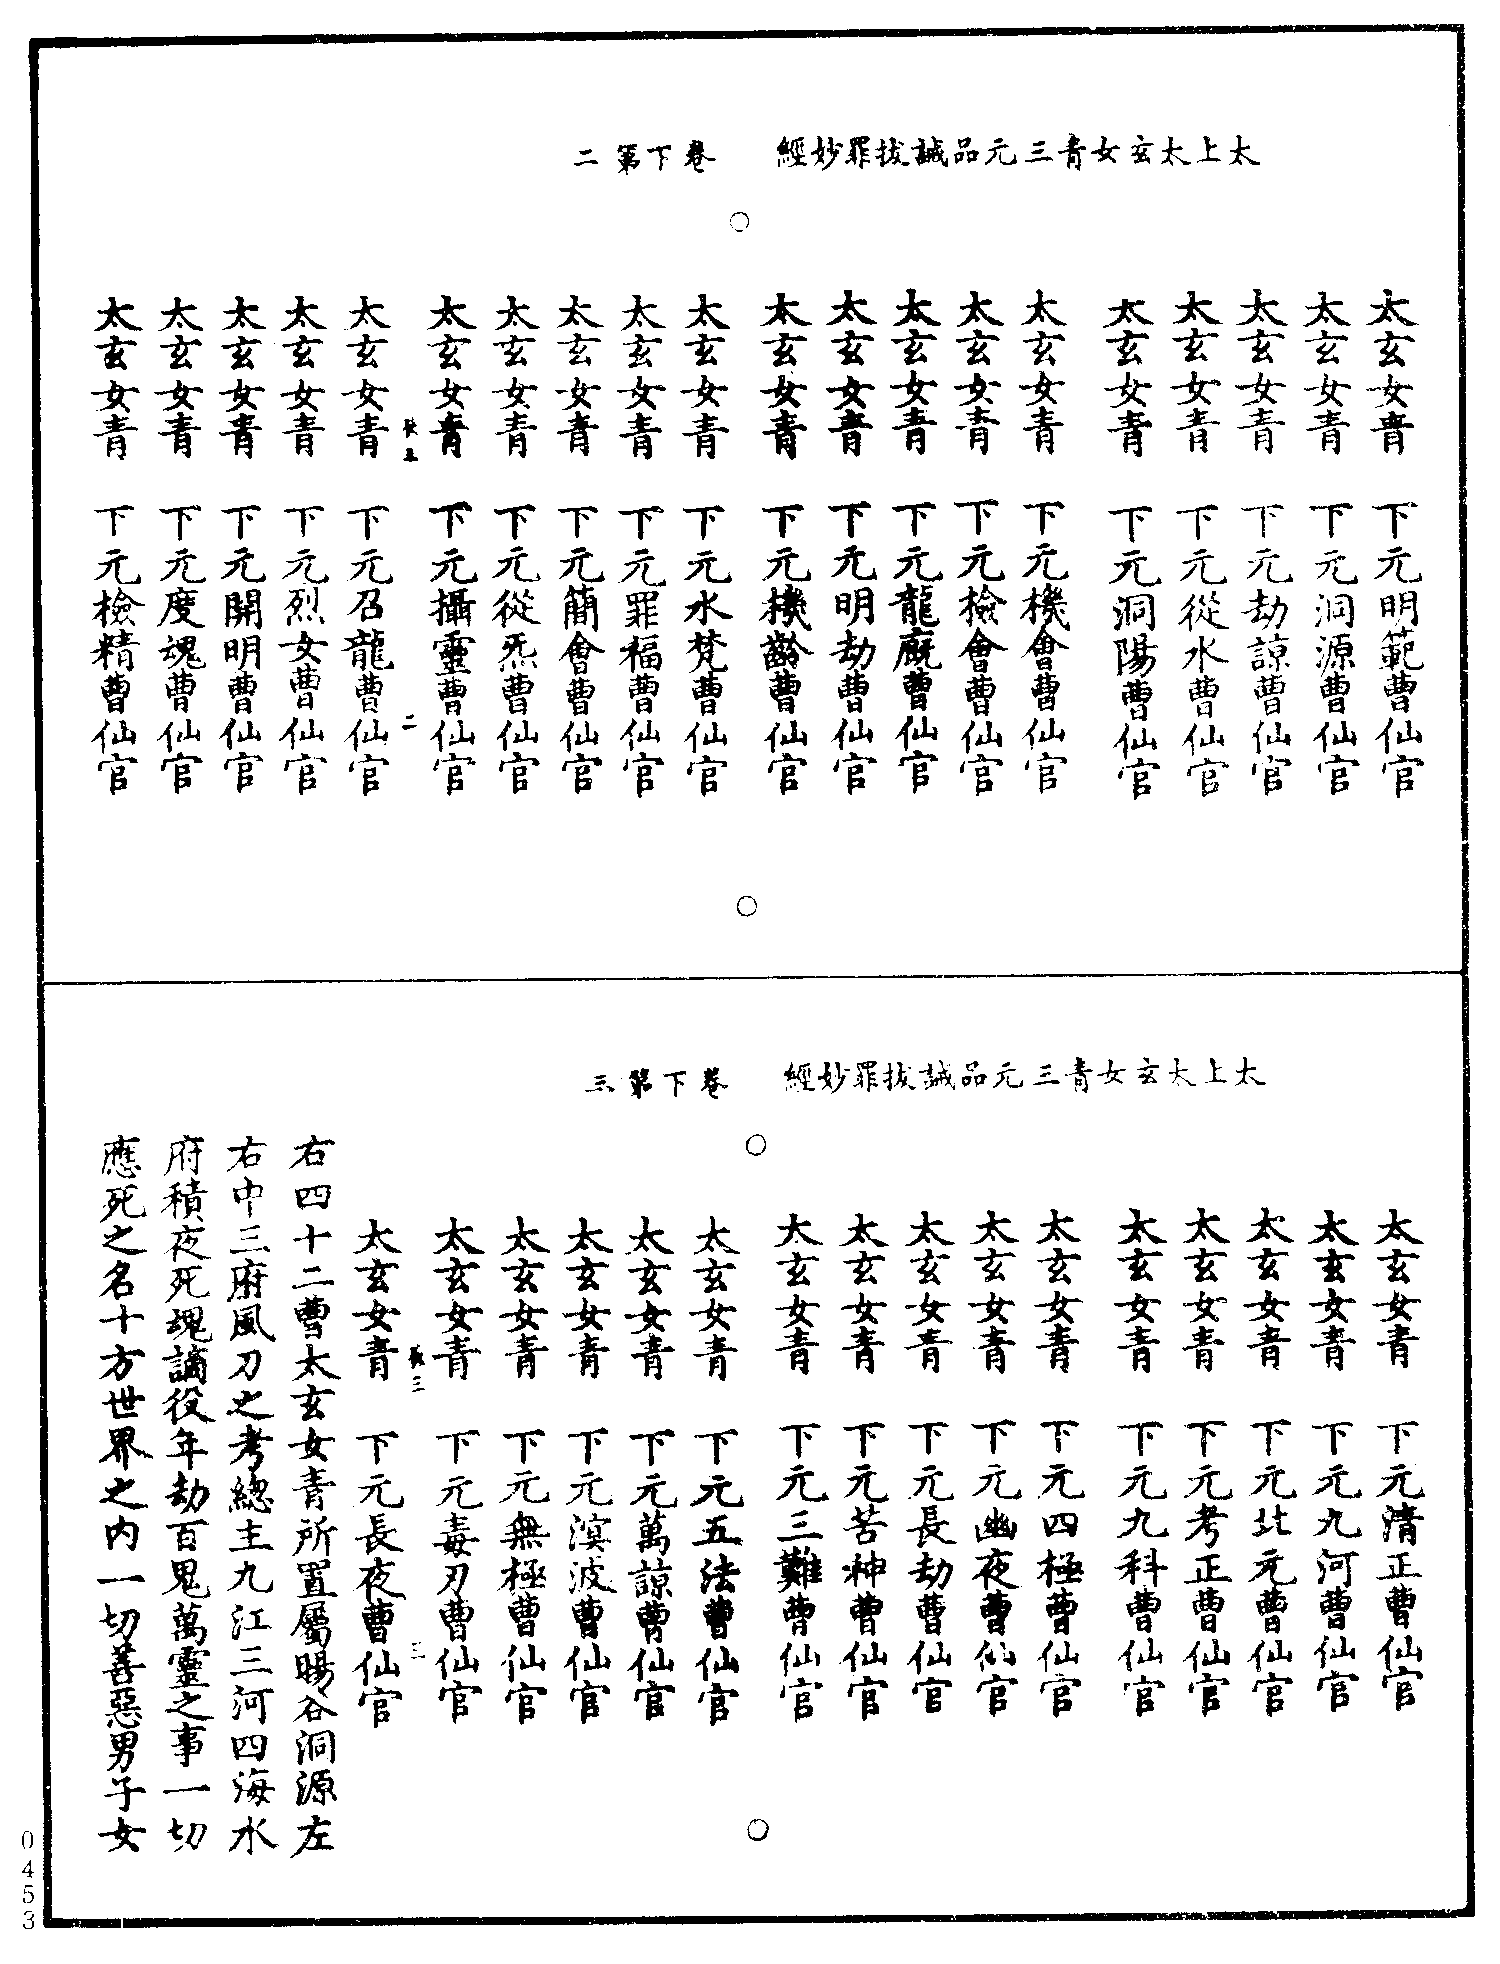 太上太玄女青三元品誡拔罪妙經　卷下第二
太玄女青　下元明範曹仙官
太玄女青　下元洞源曹仙官
太玄女青　下元劫諒曹仙官
太玄女青　下元從水曹仙官
太玄女青　下元洞陽曹仙官
太玄女青　下元機會曹仙官
太玄女青　下元檢會曹仙官
太玄女青　下元龍廐曹仙官
太玄女青　下元明劫曹仙官
太玄女青　下元機齡曹仙官
太玄女青　下元水梵曹仙官
太玄女青　下元罪福曹仙官
太玄女青　下元簡會曹仙官
太玄女青　下元從炁曹仙官
太玄女青　下元攝靈曹仙官
二
太玄女青　下元召龍曹仙官
太玄女青　下元烈女曹仙官
太玄女青　下元開明曹仙官
太玄女青　下元度魂曹仙官
太玄女青　下元檢精曹仙官
太上太玄女青三元品誡拔罪妙經　卷下第三
太玄女青　下元清正曹仙官
太玄女青　下元九河曹仙官
太玄女青　下元北元曹仙官
太玄女青　下元考正曹仙官
太玄女青　下元九科曹仙官
太玄女青　下元四極曹仙官
太玄女青　下元幽夜曹仙官
太玄女青　下元長劫曹仙官
太玄女青　下元苦神曹仙官
太玄女青　下元三難曹仙官
太玄女青　下元五法曹仙官
太玄女青　下元萬諒曹仙官
太玄女青　下元溟波曹仙官
太玄女青　下元無極曹仙官
太玄女青　下元毒刃曹仙官
三　三
太玄女青　下元長夜曹仙官
右四十二曹太玄女青所置屬暘谷洞源左
右中三府風刀之考總主九江三河四海水
府積夜死魂謫役年劫百鬼萬靈之事一切
應死之名十方世界之內一切善惡男子女
0453